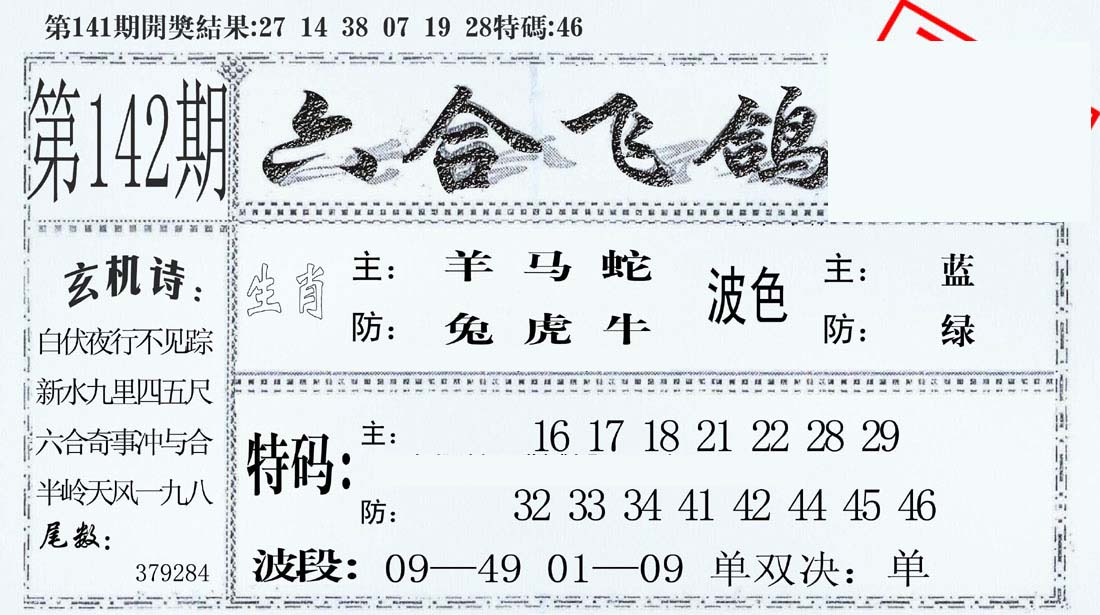 第141期開獎結果:27 14 38 07 19 28特碼:46
第142期
六合飞鸽
玄机诗：
白伏夜行不见踪
新水九里四五尺
六合奇事冲与合
半岭天风一九八
尾数：
379284
生肖
主： 羊 马 蛇
防： 兔 虎 牛
波色
主： 蓝
防： 绿
特码：
主： 16 17 18 21 22 28 29
防： 32 33 34 41 42 44 45 46
波段：09—49 01—09 单双决：单